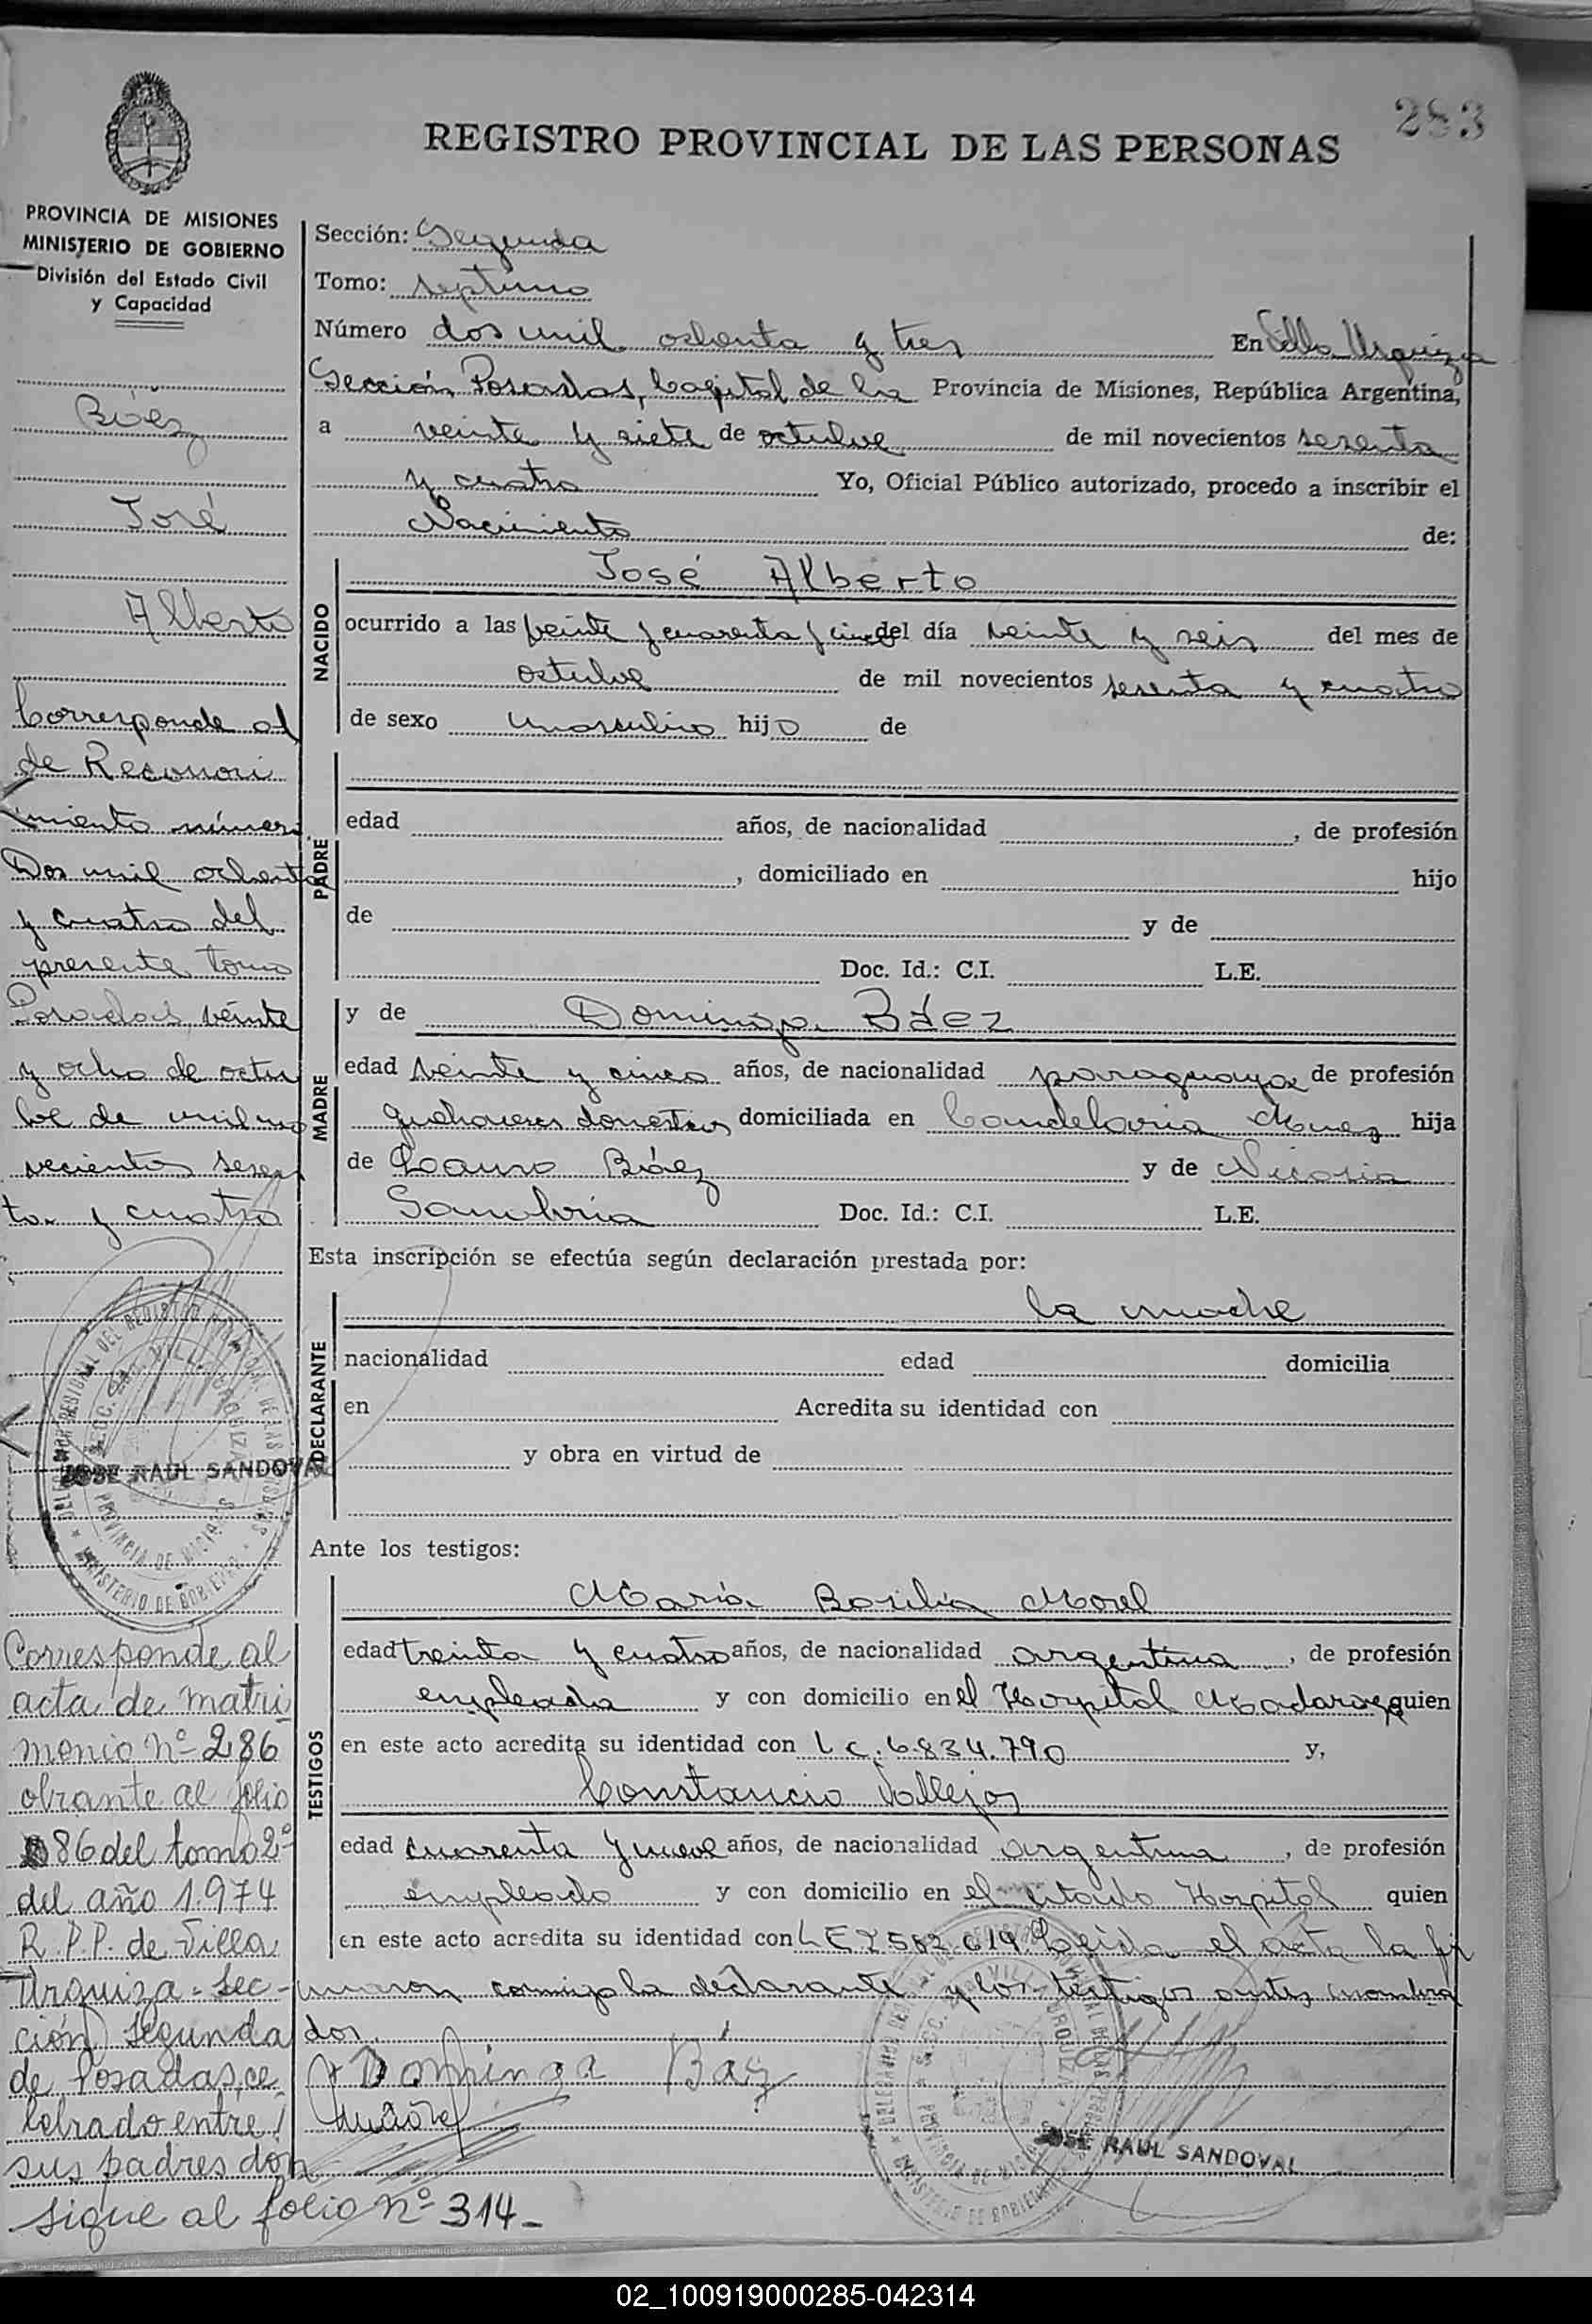 283
REGISTRO PROVINCIAL DE LAS PERSONAS
PROVINCIA DE MISIONES
MINISTERIO DE GOBIERNO
División del Estado Civil
y Capacidad
Báez
José
Alberto
Corresponde al
de Reconoci
miento número
Dos mil ochenta
y cuatro del
presente tomo
Posadas, veinte
y ocho de octu
bre de mil no
vecientos sesen
ta y cuatro
JOSE RAUL SANDOVAL
Corresponde al
acta de matri
monio nº 286
obrante al folio
86 del tomo 2º
del año 1.974
R.P.P. de Villa
Urquiza - Sec-
ción Segunda
de Posadas, ce
lebrado entre
sus padres don
sigue al folio nº 314.-
Sección: Segunda
Tomo: septimo
Número dos mil ochenta y tres En Villa Urquiza
Sección Posadas, Capital de la Provincia de Misiones, República Argentina,
a veinte y siete de octubre de mil novecientos sesenta
y cuatro Yo, Oficial Público autorizado, procedo a inscribir el
Nacimiento de:
NACIDO
José Alberto
ocurrido a las veinte y cuarenta y cinco del día veinte y seis del mes de
octubre de mil novecientos sesenta y cuatro
de sexo masculino hijo de
PADRE
edad años, de nacionalidad , de profesión
, domiciliado en hijo
de y de
Doc. Id.: C.I. L.E.
MADRE
y de Dominga Báez
edad veinte y cinco años, de nacionalidad paraguaya de profesión
quehaceres domesticos domiciliada en Candelaria hija
de Lauro Báez y de Nicasia
Sanabria Doc. Id.: C.I. L.E.
Esta inscripción se efectúa según declaración prestada por:
DECLARANTE
la madre
nacionalidad edad domicilia
en Acredita su identidad con
y obra en virtud de
Ante los testigos:
TESTIGOS
María Basilia Morel
edad treinta y cuatro años, de nacionalidad argentina, de profesión
empleada y con domicilio en el Hospital Madariaga quien
en este acto acredita su identidad con L.C. 6.834.790 y,
Constancio Vallejos
edad cuarenta y nueve años, de nacionalidad argentina, de profesión
empleado y con domicilio en el citado Hospital quien
en este acto acredita su identidad con L E 7582.619. Leida el acta la fir
maron conmigo la declarante y los testigos antes nombra
dos.
Dominga Báez
JOSE RAUL SANDOVAL
02_100919000285-042314